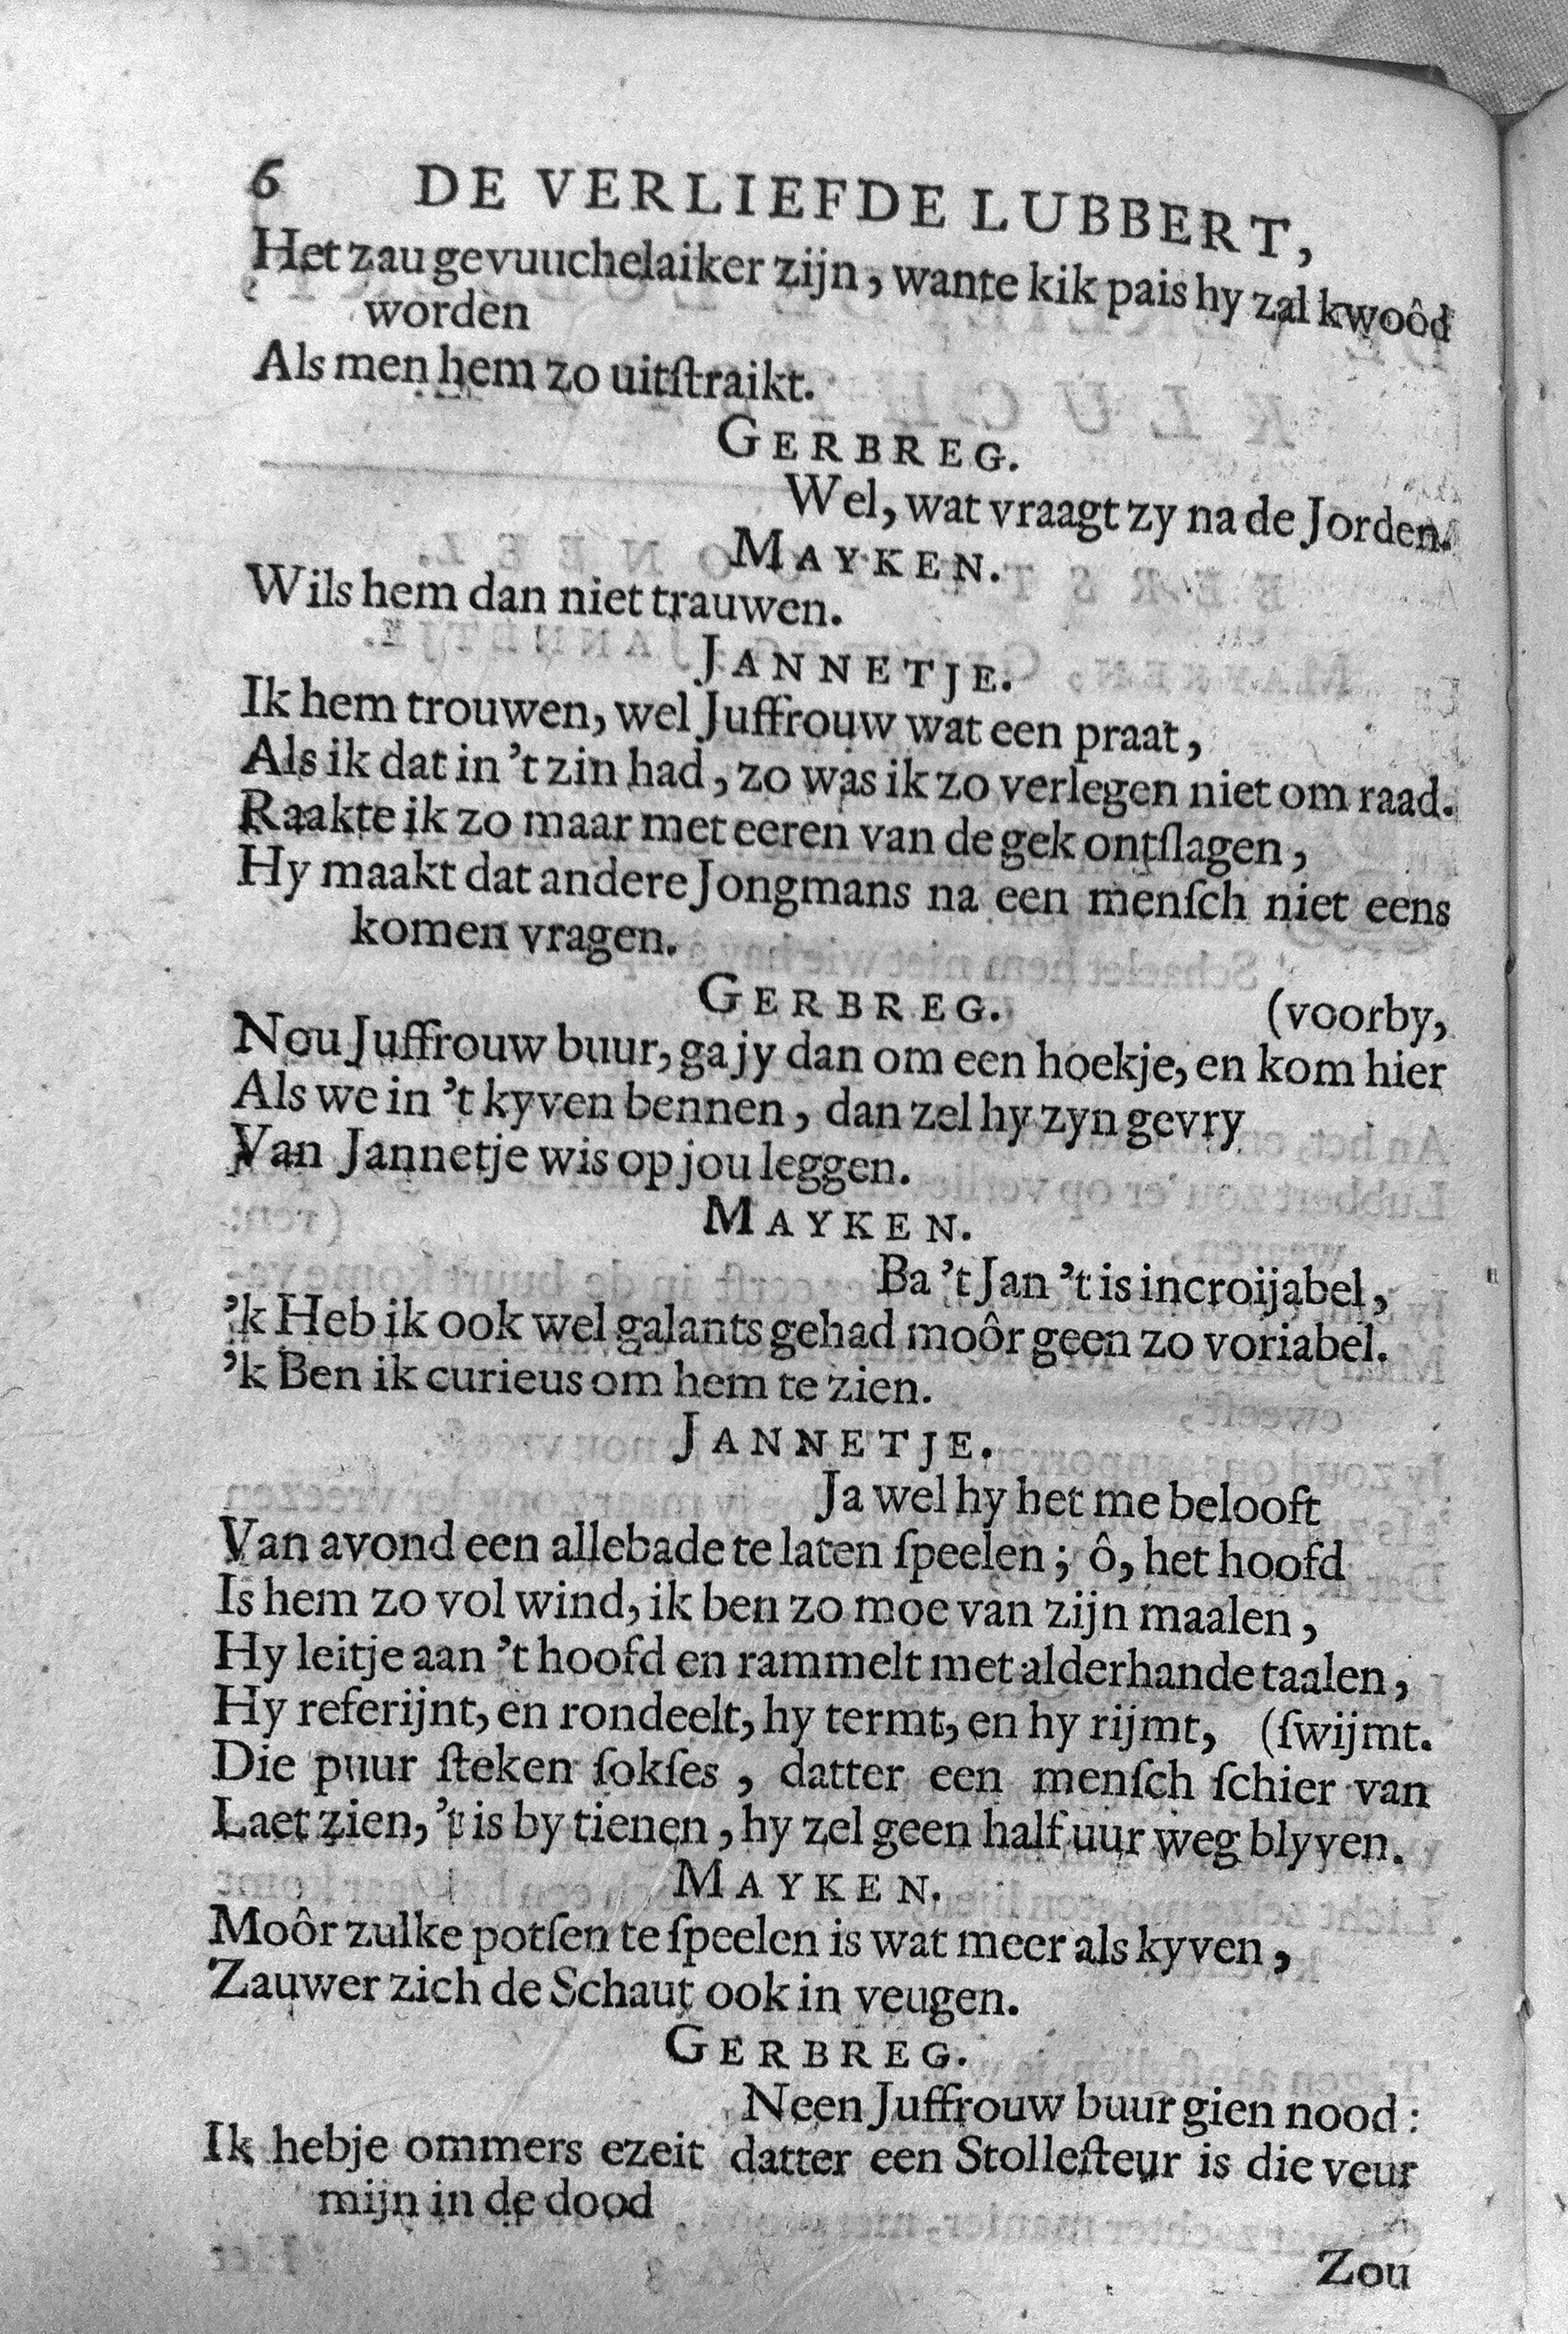 6 DE VERLIEFDE LUBBERT,
Het zau gevuuchelaiker zijn, wante kik pais hy zal kwoôd
worden
Als men hem zo uitſtraikt.
GERBREG.
Wel, wat vraagt zy na de Jorden.
MAYKEN.
Wils hem dan niet trauwen.
JANNETJE.
Ik hem trouwen, wel Juffrouw wat een praat,
Als ik dat in 't zin had, zo was ik zo verlegen niet om raad.
Raakte ik zo maar met eeren van de gek ontſlagen,
Hy maakt dat andere Jongmans na een menſch niet eens
komen vragen.
GERBREG. (voorby,
Nou Juffrouw buur, ga jy dan om een hoekje, en kom hier
Als we in 't kyven bennen, dan zel hy zyn gevry
Van Jannetje wis op jou leggen.
MAYKEN.
Ba 't Jan 't is incroijabel,
'k Heb ik ook wel galants gehad moôr geen zo voriabel.
'k Ben ik curieus om hem te zien.
JANNETJE.
Ja wel hy het me belooft
Van avond een allebade te laten ſpeelen; ô, het hoofd
Is hem zo vol wind, ik ben zo moe van zijn maalen,
Hy leitje aan 't hoofd en rammelt met alderhande taalen,
Hy referijnt, en rondeelt, hy termt, en hy rijmt, (ſwijmt.
Die puur ſteken ſokſes, datter een menſch ſchier van
Laet zien, 't is by tienen, hy zel geen half uur weg blyven.
MAYKEN.
Moôr zulke potſen te ſpeelen is wat meer als kyven,
Zauwer zich de Schaut ook in veugen.
GERBREG.
Neen Juffrouw buur gien nood:
Ik hebje ommers ezeit datter een Stolleſteur is die veur
mijn in de dood
Zou